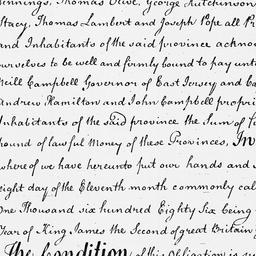 Jennings, Thomas Olive, George Hutchinson
Stacy, Thomas Lambert and Joseph Pope all Pr
and Inhabitants of the said province acknow
ourselves to be well and firmly bound to pay unto
Neill Campbell Governor of East Jersey and
Andrew Hamilton and John Campbell propri
Inhabitants of the said province the Sum of fi
pound of lawful Money of these Provinces, In
where of we have hereunto put our hands and s
eight day of the Eleventh month commonly cal
One Thousand six hundred Eighty Six being
Year of King James the Second of great Britain
The Condition of this Obligation is su